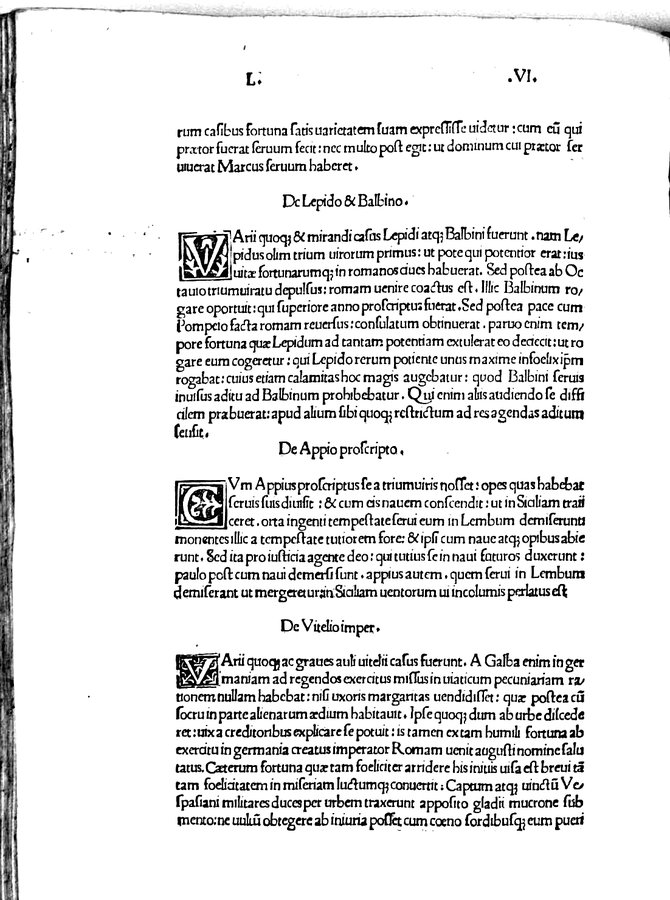 L. .VI.
rum casibus fortuna satis uarietatem suam expressisse uidetur : cum eū qui
prætor fuerat seruum fecit : nec multo post egit : ut dominum cui prætor ser
uiuerat Marcus seruum haberet .
De Lepido & Balbino .
VArii quoq; & mirandi casus Lepidi atq; Balbini fuerunt . nam Le/
pidus olim trium uirorum primus : ut pote qui potentior erat : ius
uitæ fortunarumq; in romanos ciues habuerat. Sed postea ab Oc
tauio triumuiratu depulsus : romam uenire coactus est . Illic Balbinum ro/
gare oportuit : qui superiore anno proscriptus fuerat . Sed postea pace cum
Pompeio facta romam reuersus : consulatum obtinuerat . paruo enim tem/
pore fortuna quæ Lepidum ad tantam potentiam extulerat eo deiecit : ut ro
gare eum cogeretur : qui Lepido rerum potiente unus maxime infoelix ip̄m
rogabat : cuius etiam calamitas hoc magis augebatur : quod Balbini seruis
inuisus aditu ad Balbinum prohibebatur . Qui enim aliis audiendo se diffi
cilem præbuerat : apud alium sibi quoq; restrictum ad res agendas aditum
sensit .
De Appio proscripto .
CVm Appius proscriptus se a triumuiris nosset : opes quas habebat
seruis suis diuisit : & cum eis nauem conscendit : ut in Siciliam traii
ceret . orta ingenti tempestate serui eum in Lembum demiserunt
monentes illic a tempestate tutiorem fore : & ipsi cum naue atq; opibus abie
runt . Sed ita pro iusticia agente deo : qui tutius se in naui futuros duxerunt :
paulo post cum naui demersi sunt . appius autem . quem serui in Lembum
demiserant ut mergeretur : in Siciliam uentorum ui incolumis perlatus est
De Vitelio imper .
VArii quoq; ac graues auli uitelii casus fuerunt . A Galba enim in ger
maniam ad regendos exercitus missus in uiaticum pecuniariam ra/
tionem nullam habebat : nisi uxoris margaritas uendidisset : quæ postea cū
socru in parte alienarum ædium habitauit . Ipse quoq; dum ab urbe discede
ret : uix a creditoribus explicare se potuit : is tamen ex tam humili fortuna ab
exercitu in germania creatus imperator Romam uenit augusti nomine salu
tatus. Cæterum fortuna quæ tam foeliciter arridere his initiis uisa est breui tā
tam foelicitatem in miseriam luctumq; conuertit : Captum atq; uinctū Ve/
spasiani militares duces per urbem traxerunt apposito gladii mucrone sub
mento : ne uultū obtegere ab iniuria posset cum coeno sordibusq; eum pueri